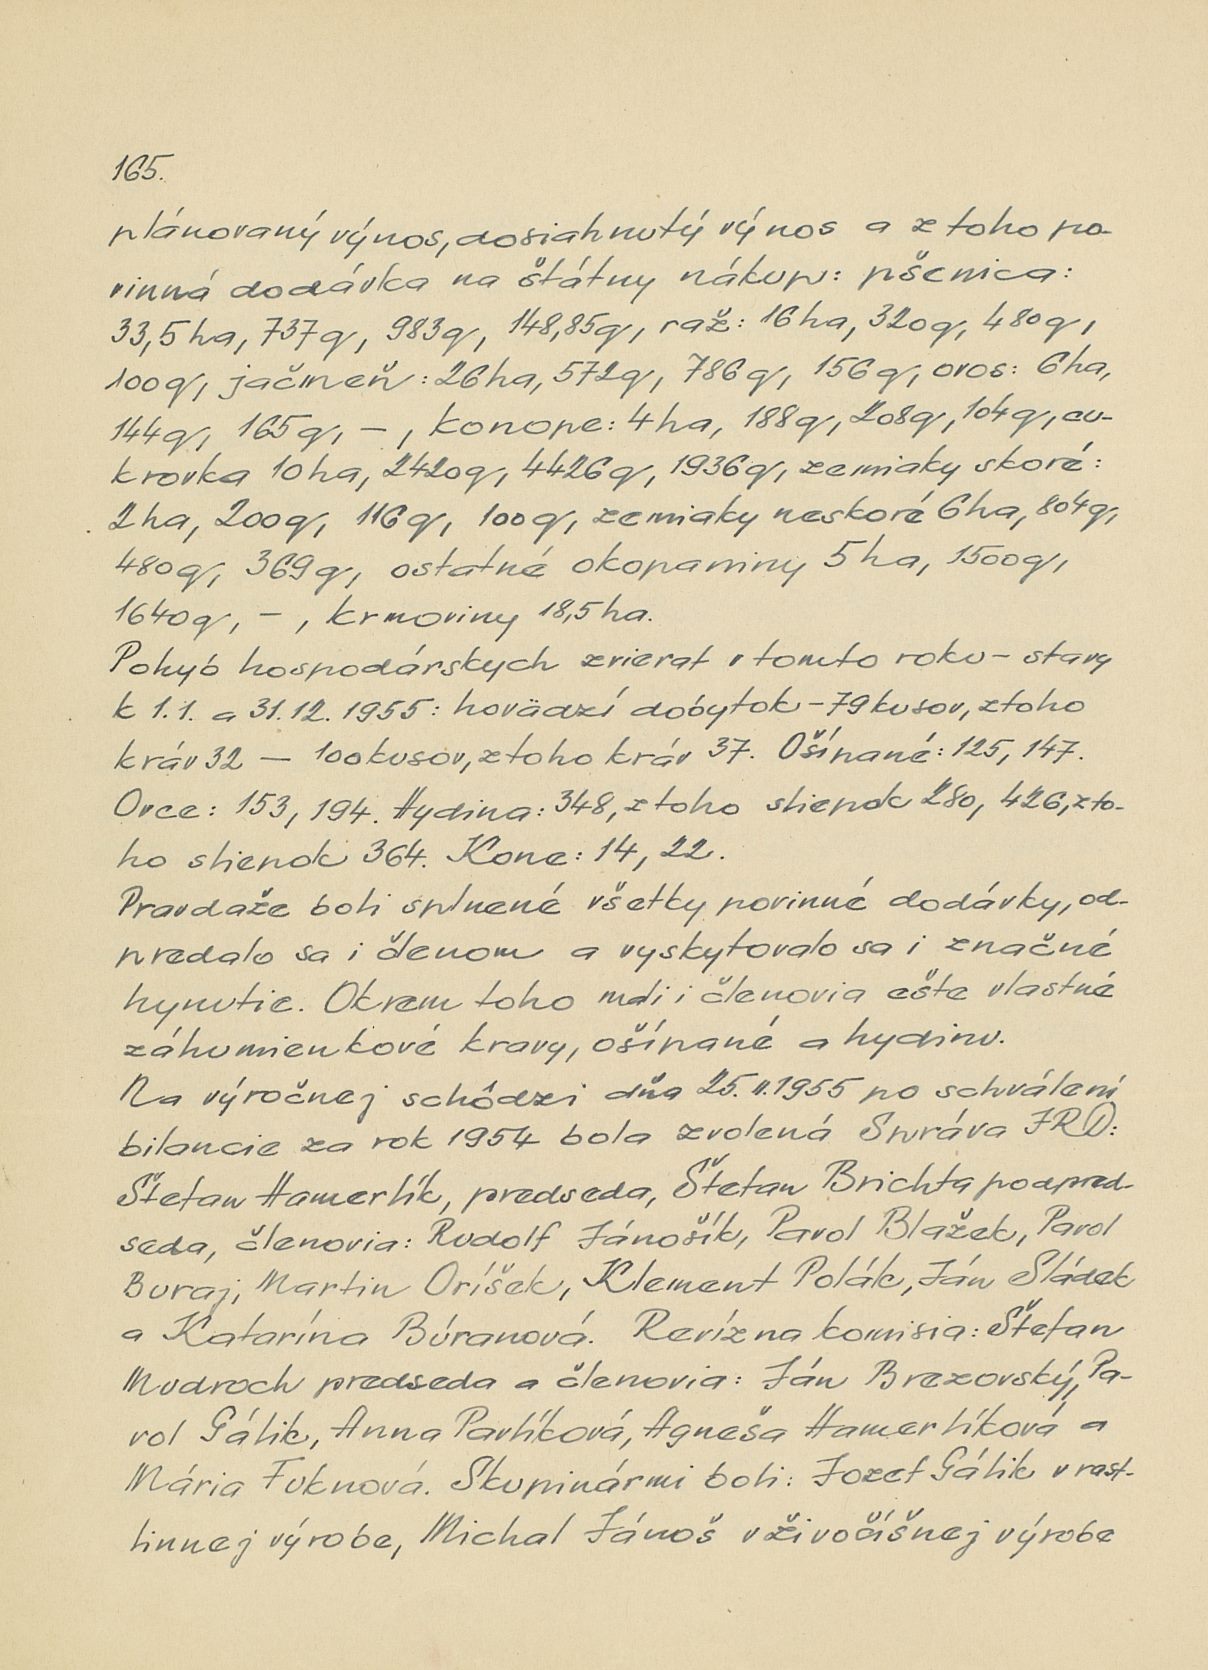 165.
plánovaný výnos, dosiahnutý výnos a z toho po-
vinná dodávka na štátny nákup: pšenica:
33,5 ha, 737 q, 983 q, 148,85 q, raž: 16 ha, 320 q, 480 q,
100 q, jačmeň: 26 ha, 572 q, 786 q, 156 q, ovos: 6 ha,
144 q, 165 q, – , konope: 4 ha, 188 q, 208 q, 104 q, cu-
krovka 10 ha, 2420 q, 4426 q, 1936 q, zemiaky skoré:
2 ha, 200 q, 116 q, 100 q, zemiaky neskoré 6 ha, 804 q,
480 q, 369 q, ostatné okopaniny 5 ha, 1500 q,
1640 q, – , krmoviny 18,5 ha.
Pohyb hospodárskych zvierat v tomto roku – stavy
k 1. 1. a 31. 12. 1955: hovädzí dobytok – 79 kusov, z toho
kráv 32 — 100 kusov, z toho kráv 37. Ošípané: 125, 147.
Ovce: 153, 194. Hydina: 348, z toho sliepok 280, 426, z to-
ho sliepok 364. Kone: 14, 22.
Pravdaže boli splnené všetky povinné dodávky, od-
predalo sa i členom a vyskytovalo sa i značné
hynutie. Okrem toho mali i členovia ešte vlastné
záhumienkové kravy, ošípané a hydinu.
Na výročnej schôdzi dňa 25. II. 1955 po schválení
bilancie za rok 1954 bola zvolená Správa JRD:
Štefan Hamerlík, predseda, Štefan Brichta podpred-
seda, členovia: Rudolf Jánošík, Pavol Blažek, Pavol
Buraj, Martin Oríšek, Klement Polák, Ján Sládek
a Katarína Búranová. Revízna komisia: Štefan
Mudroch predseda a členovia: Ján Brezovský, Pa-
vol Gálik, Anna Pavlíková, Agneša Hamerlíková a
Mária Fuknová. Skupinármi boli: Jozef Gálik v rast-
linnej výrobe, Michal Jánoš v živočíšnej výrobe